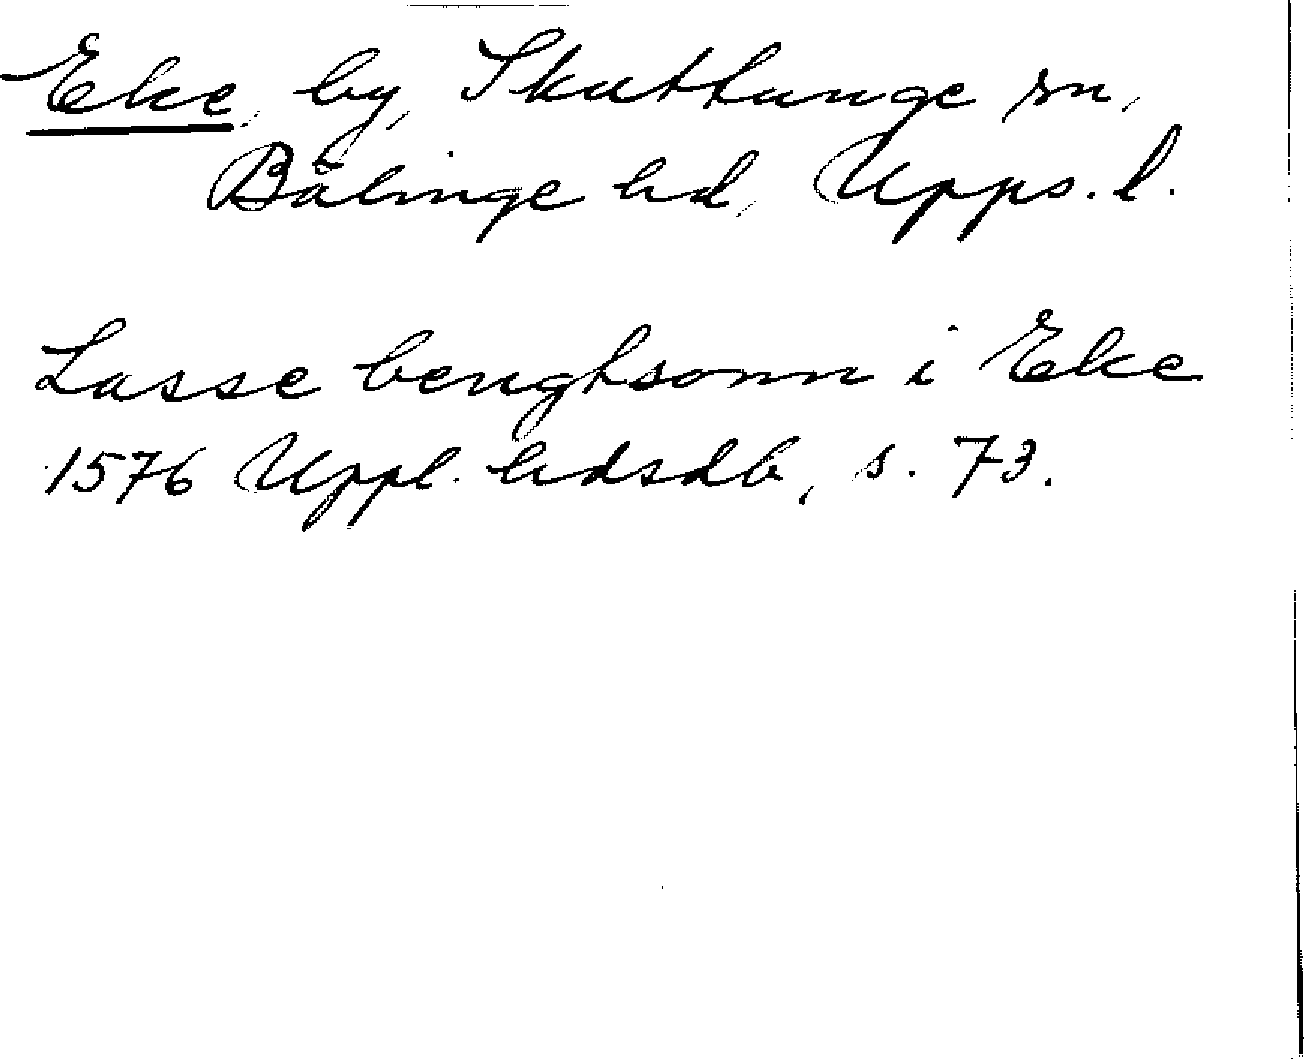 Eke, by, Skuttunge sn,
Bälinge hd, Upps. l.
Lasse benghtsonn i Eke
1576 Uppl. hdsdb, s. 73.